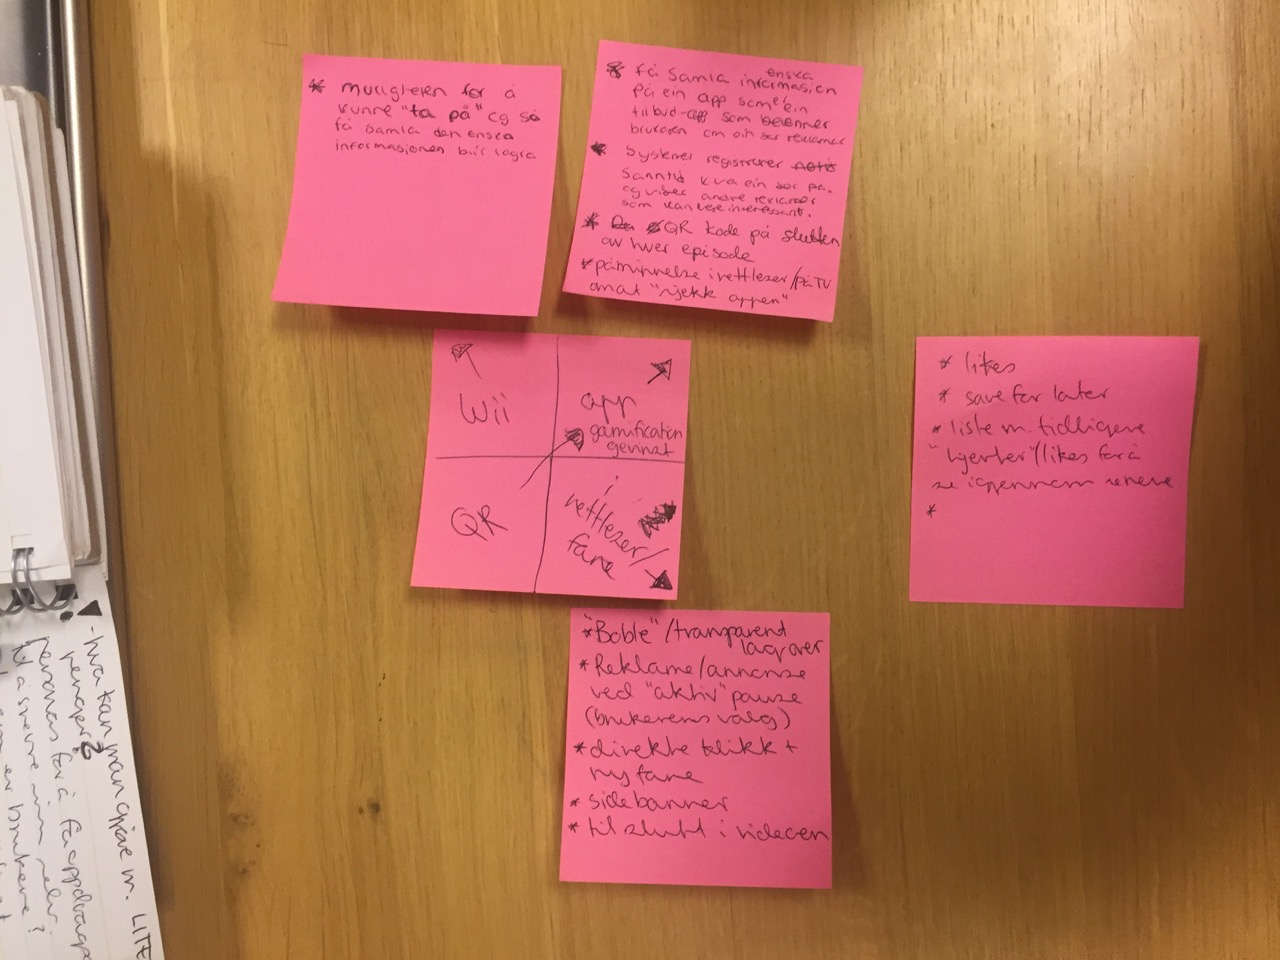 * muligheten for å
kunne "ta på" og så
få samla den ønska
informasjonen blir lagra
* Få samla ønska informasjon
på ein app som e' ein
tilbud-app som belønner
brukeren om ein ser reklamer
* Systemet registrerer
Sanntid kva ein ser på.
og viser andre reklamer
som kan vere interessant.
* QR kode på slutten
av hver episode
* påminnelse i nettleser/på TV
om at "sjekk appen"
Wii
app
gamification
gevinst
QR
i
nettleser/
fane
* likes
* save for later
* liste m. tidligere
"hjerter"/likes for å
se igjennom senere
*
* "Boble"/transparent
lag over
* Reklame/annonse
ved "aktiv" pause
(brukerens valg)
* direkte klikk +
ny fane
* sidebanner
* til slutt i videoen
- hva kan man gjøre m. LITE
penger?
personas for å få